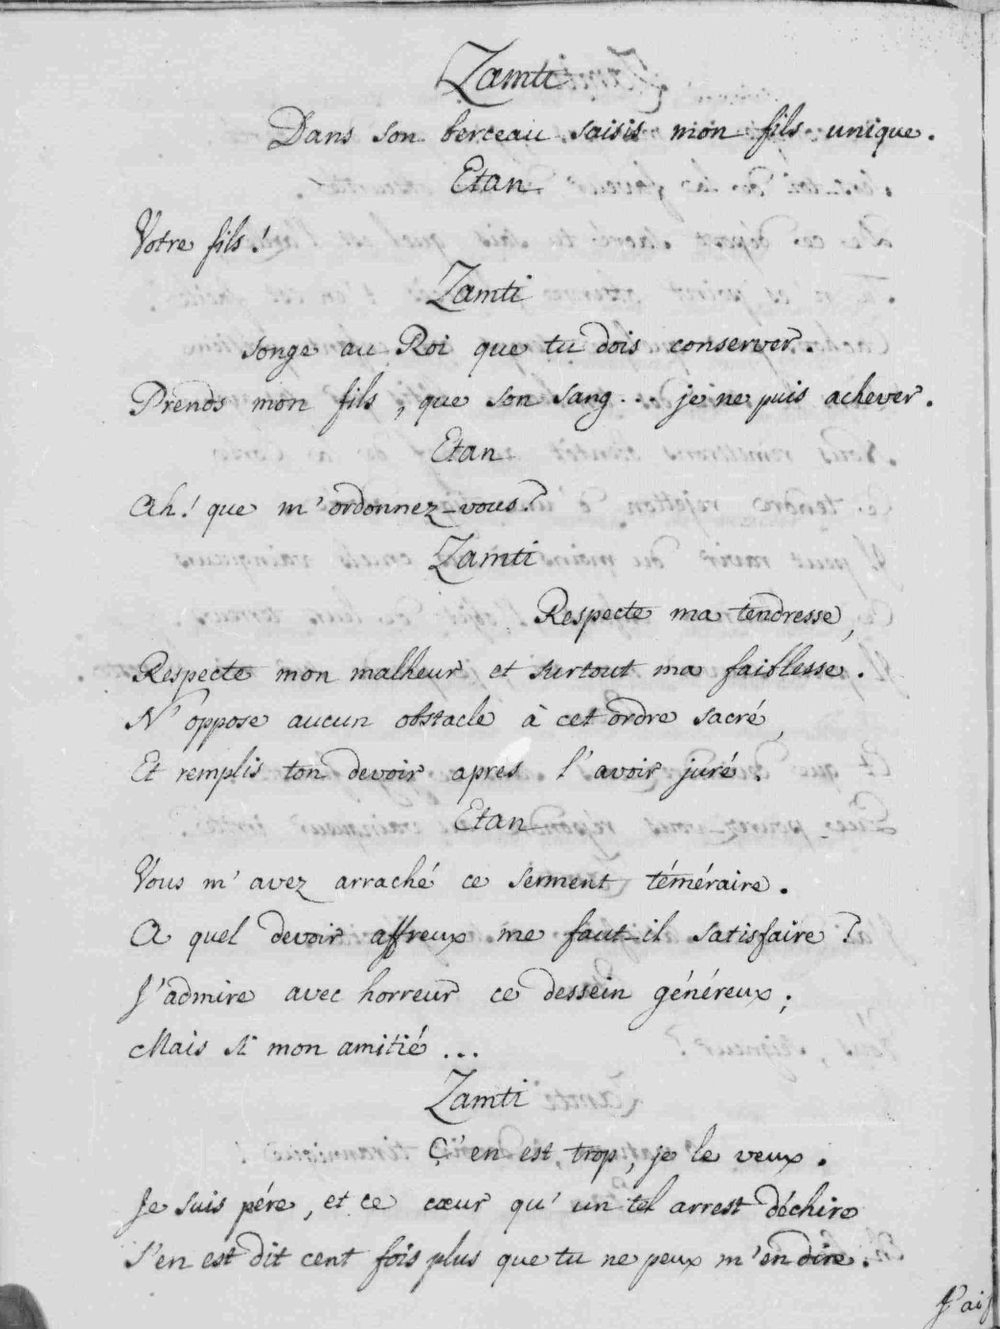 Zamti
Dans son berceau saisis mon fils unique.
Etan
Votre fils!
Zamti
songe au Roi que tu dois conserver.
Prends mon fils, que son sang... je ne puis achever.
Etan
Ah! que m'ordonnez-vous?
Zamti
Respecte ma tendresse,
Respecte mon malheur et surtout ma faiblesse.
N'oppose aucun obstacle à cet ordre sacré,
Et remplis ton devoir apres l'avoir juré.
Etan
Vous m'avez arraché ce serment téméraire.
A quel devoir affreux me faut-il satisfaire?
J'admire avec horreur ce dessein généreux;
Mais si mon amitié...
Zamti
C'en est trop, je le veux.
Je suis pére, et ce cœur qu'un tel arrest déchire
S'en est dit cent fois plus que tu ne peux m'en dire.
J'ai